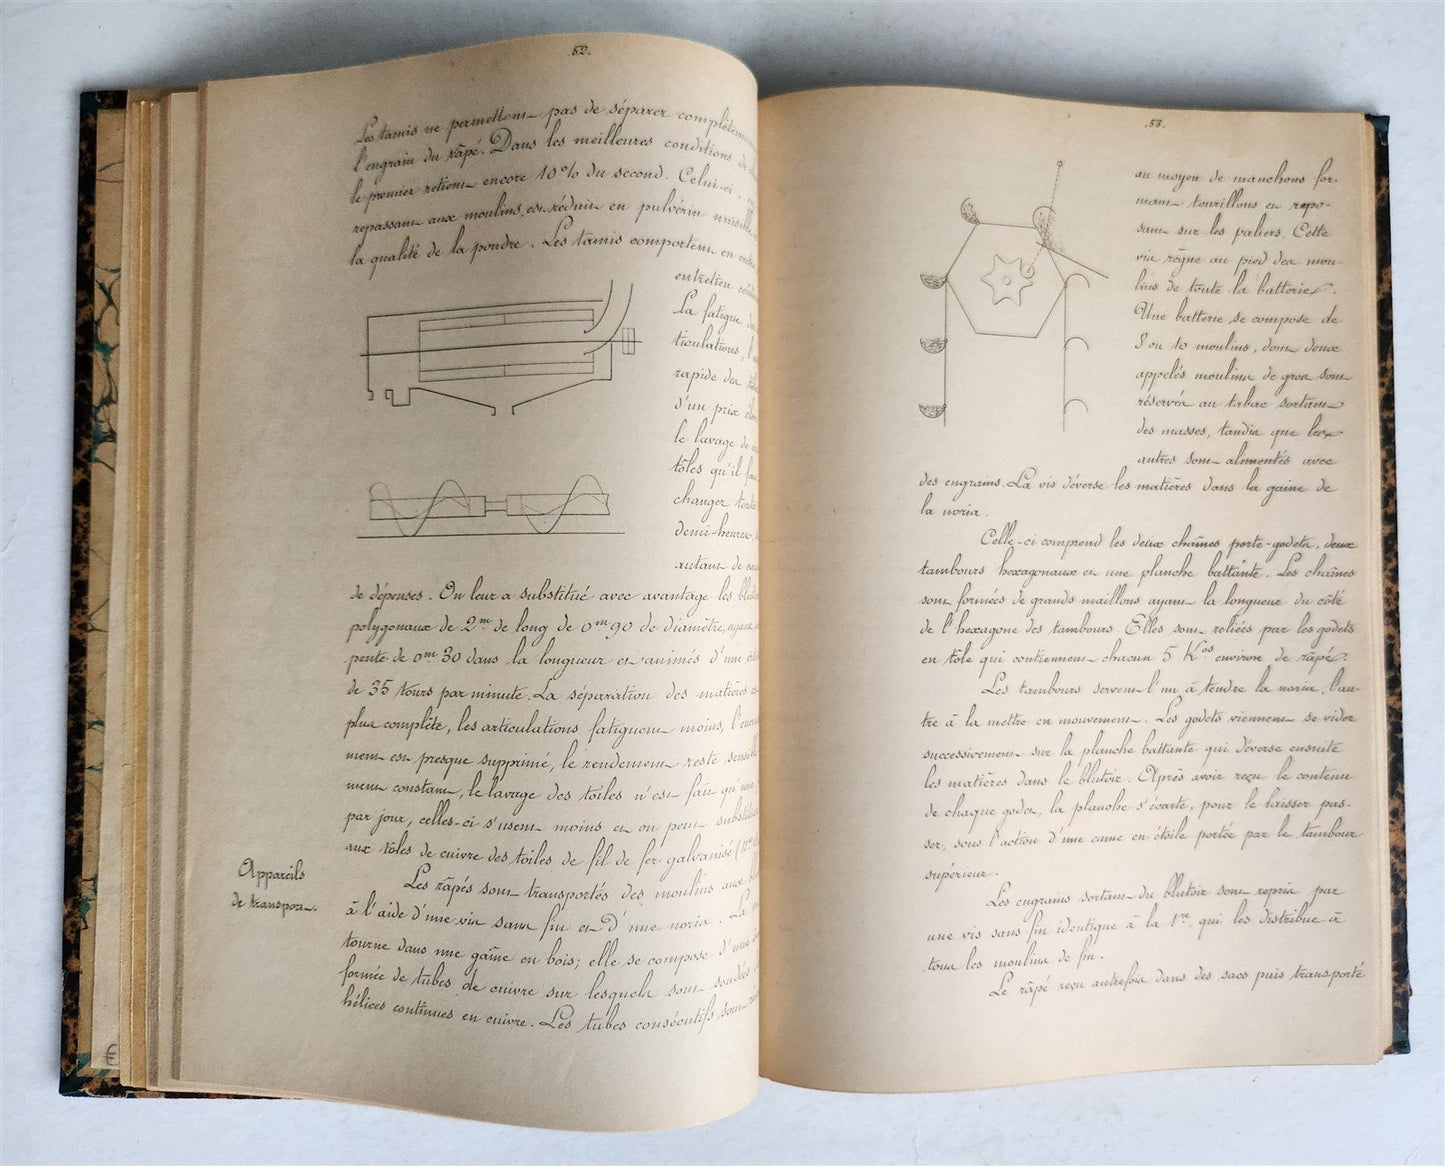 .52.
Les tamis ne permettent pas de séparer complètement
l'engrain du râpé. Dans les meilleures conditions de
le premier retient encore 10% du second. Celui-ci,
repassant aux moulins, est réduit en pulvérin nuisible
la qualité de la poudre. Les tamis comportent en outre
entretien
La fatigue
ticulations,
rapide des
d'un prix
le lavage de
tôles qu'il
changer toutes
demi-heures,
autant de
de dépenses. On leur a substitué avec avantage les
polygonaux de 2m de long de 0m90 de diamètre, ayant
pente de 0m30 dans la longueur et animés d'une
de 35 tours par minute. La séparation des matières
plus complète, les articulations fatiguent moins,
ment est presque supprimé, le rendement reste
ment constant, le lavage des toiles n'est fait qu'une
par jour, celles-ci s'usent moins et on peut substituer
aux tôles de cuivre des toiles de fil de fer galvanisé
Appareils
de transport.
Les râpés sont transportés des moulins aux
à l'aide d'une vis sans fin et d'une noria. La
tourne dans une gaîne en bois; elle se compose d'une
formée de tubes de cuivre sur lesquels sont soudées
hélices continues en cuivre. Les tubes consécutifs sont
.53.
au moyen de manchons for-
mant tourillons et repo-
sant sur les paliers. Cette
vis règne au pied des mou-
lins de toute la batterie.
Une batterie se compose de
8 ou 10 moulins, dont deux
appelés moulins de gros sont
réservés au tabac sortant
des masses, tandis que les
autres sont alimentés avec
des engrains. La vis déverse les matières dans la gaine de
la noria.
Celle-ci comprend les deux chaînes porte-godets, deux
tambours hexagonaux et une planche battante. Les chaînes
sont formées de grands maillons ayant la longueur du côté
de l'hexagone des tambours. Elles sont reliées par les godets
en tôle qui contiennent chacun 5 Kos environ de râpé.
Les tambours servent l'un à tendre la noria, l'au-
tre à la mettre en mouvement. Les godets viennent se vider
successivement sur la planche battante qui déverse ensuite
les matières dans le blutoir. Après avoir reçu le contenu
de chaque godet, la planche s'écarte, pour le laisser pas-
ser, sous l'action d'une came en étoile portée par le tambour
supérieur.
Les engrains sortant du blutoir sont repris par
une vis sans fin identique à la 1re. qui les distribue à
tous les moulins de fin.
Le râpé reçu autrefois dans des sacs puis transporté